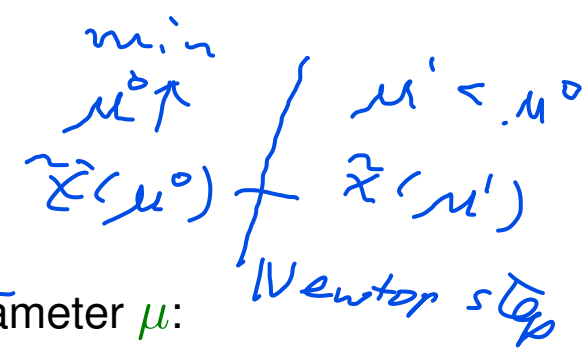 min
μ⁰↑ μ¹ < μ⁰
x̃(μ⁰) x̃(μ¹)
Newton step
ameter μ: